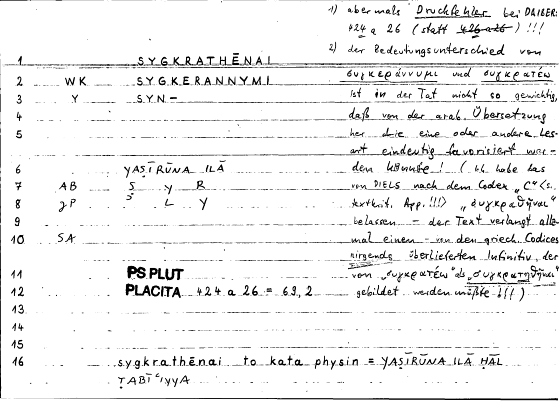 1) abermals Druckfehler bei DAIBER:
424 a 26 (statt 426 a 26) !!!
2) der Bedeutungsunterschied von
συγκεράννυμι und συγκρατέω
ist in der Tat nicht so gewichtig,
daß von der arab. Übersetzung
her die eine oder andere Les-
art eindeutig favorisiert wer-
den könnte! (ich habe das
von DIELS nach dem Codex „C" (s.
textkrit. App.!!!) „συγκραθῆναι"
belassen - der Text verlangt alle-
mal einen - von den griech. Codices
nirgends überlieferten Infinitiv, der
von „συγκρατέω" als „συγκρατηθῆναι"
gebildet werden müßte!!!)
1 SYGKRATHĒNAI
2 WK SYGKERANNYMI
3 Y SYN-
4
5
6 YAṢĪRŪNA ILĀ
7 AB Ṣ Y R
8 gP L Y
9
10 SA
11 PS PLUT
12 PLACITA 424 a 26 = 69,2
13
14
15
16 sygkrathēnai to kata physin = YAṢĪRŪNA ILĀ ḤĀL
ṬABĪʿIYYA